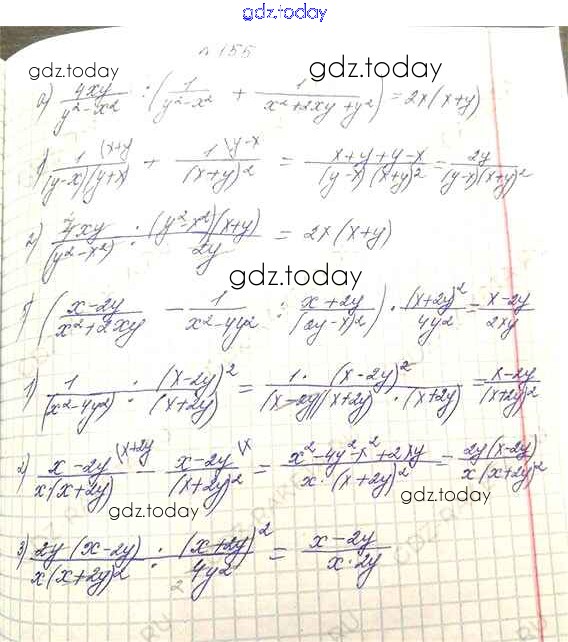 gdz.today
№155
gdz.today gdz.today
а) 4xy/(y²-x²) : (1/(y²-x²) + 1/(x²+2xy+y²)) = 2x(x+y)
1) 1\(x+y/(y-x)(y+x) + 1\y-x/(x+y)² = x+y+y-x/(y-x)(x+y)² = 2y/(y-x)(x+y)²
2) 4xy/(y²-x²) : (y²-x²)(x+y)/2y = 2x(x+y)
gdz.today
(x-2y/x²+2xy - 1/x²-4y² : x+2y/(2y-x)²) · (x+2y)²/4y² = x-2y/2xy
1) 1/(x²-4y²) : (x-2y)²/(x+2y) = 1·(x-2y)²/(x-2y)(x+2y)·(x+2y) = x-2y/(x+2y)²
2) x-2y\(x+2y/x(x+2y) - x-2y\x/(x+2y)² = x²-4y²-x²+2xy/x·(x+2y)² = 2y(x-2y)/x(x+2y)²
gdz.today gdz.today
3) 2y(x-2y)/x(x+2y)² : (x+2y)²/4y² = x-2y/x·2y